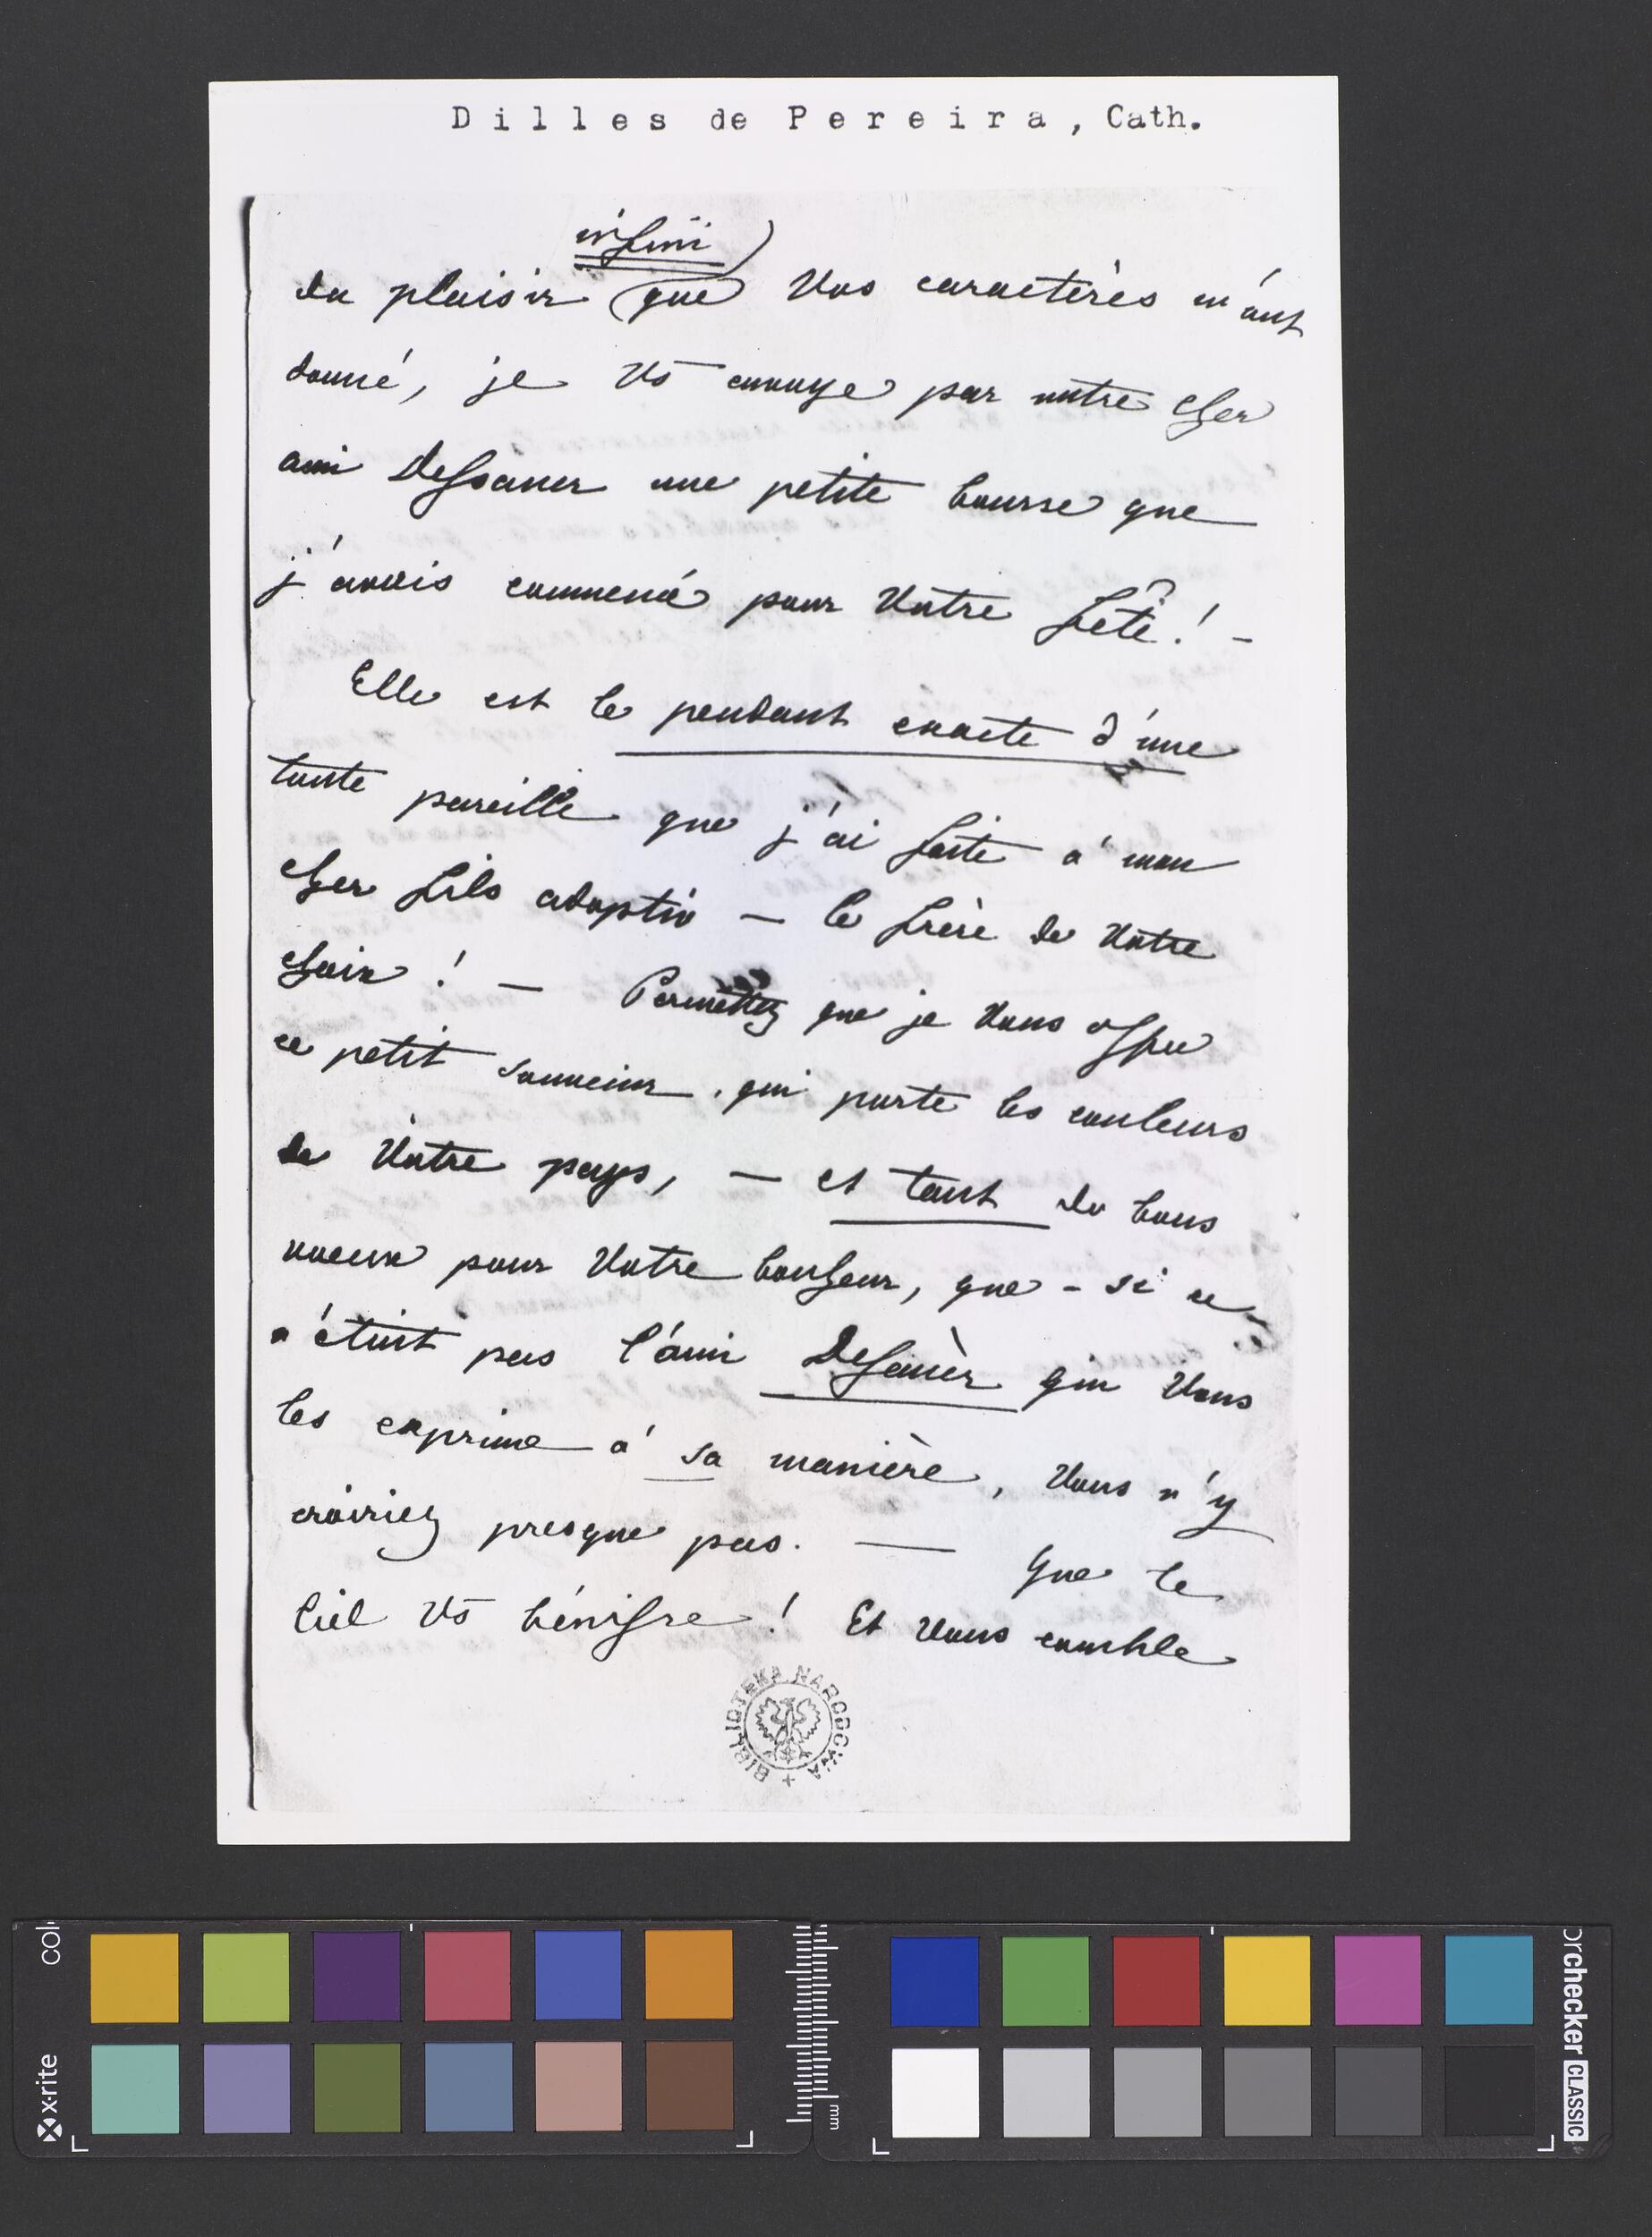 Dilles de Pereira, Cath.
infini
du plaisir que Vos caractères m'ont
donné, je Vs envoye par notre cher
ami Dessauer une petite bourse que
j'avois commencé pour Votre fête! –
Elle est le pendant exacte d'une
toute pareille que j'ai faite à mon
cher fils adoptiv – le frère de Votre
choix! – Permettez que je Vous offre
ce petit souvenir, qui porte les couleurs
de Votre pays, – et tant de bons
voeux pour Votre bonheur, que – si ce
n'étoit pas l'ami Dessauèr qui Vous
les exprime à sa manière, Vous n'y
croiriez presque pas. — Que le
Ciel Vs bénisse! Et Vous comble
BIBLIOTEKA NARODOWA
x-rite
col
orchecker CLASSIC
mm